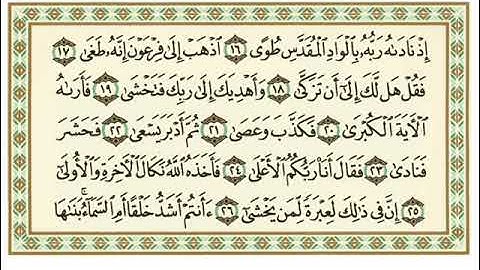 إِذْ نَادَىٰهُ رَبُّهُۥ بِٱلْوَادِ ٱلْمُقَدَّسِ طُوًى ١٦ ٱذْهَبْ إِلَىٰ فِرْعَوْنَ إِنَّهُۥ طَغَىٰ ١٧
فَقُلْ هَل لَّكَ إِلَىٰٓ أَن تَزَكَّىٰ ١٨ وَأَهْدِيَكَ إِلَىٰ رَبِّكَ فَتَخْشَىٰ ١٩ فَأَرَىٰهُ
ٱلْءَايَةَ ٱلْكُبْرَىٰ ٢٠ فَكَذَّبَ وَعَصَىٰ ٢١ ثُمَّ أَدْبَرَ يَسْعَىٰ ٢٢ فَحَشَرَ
فَنَادَىٰ ٢٣ فَقَالَ أَنَا۠ رَبُّكُمُ ٱلْأَعْلَىٰ ٢٤ فَأَخَذَهُ ٱللَّهُ نَكَالَ ٱلْءَاخِرَةِ وَٱلْأُولَىٰٓ
٢٥ إِنَّ فِى ذَٰلِكَ لَعِبْرَةً لِّمَن يَخْشَىٰٓ ٢٦ ءَأَنتُمْ أَشَدُّ خَلْقًا أَمِ ٱلسَّمَآءُ ۚ بَنَىٰهَا